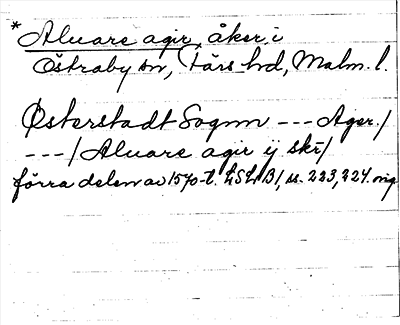 * Aluare agir, åker i
Östraby sn, Färs hd, Malm. l.
Østerstadt Sognn --- Ager./
---/ Aluare agir ij skr/
förra delen av 1570-t. LSL B1, ss. 223, 224. orig